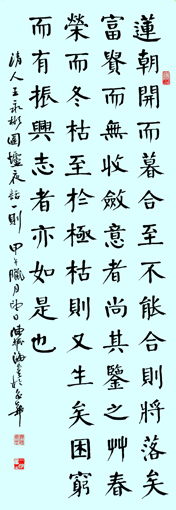 蓮朝開而暮合至不能合則將落矣
富貴而無收斂意者尚其鑒之艸春
榮而冬枯至於極枯則又生矣困窮
而有振興志者亦如是也
清人王永彬圍爐夜話一則 甲午臘月